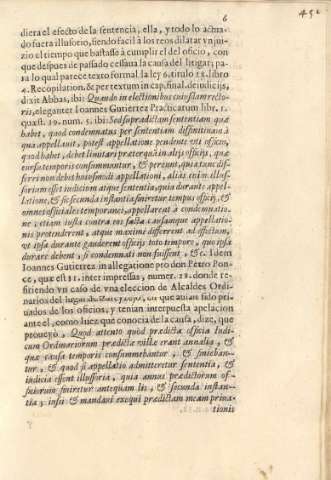 6
452
diera el efecto de la sentencia, ella, y todo lo actua-
do fuera illusorio, siendo facil à los reos dilatar vn jui-
zio el tiempo que bastasse à cumplir el del oficio, con
que despues de passado cessaua la causa del litigar; pa-
ra lo qual parece texto formal la ley 6. titulo 18. libro
4. Recopilation. & per textum in cap. final. de iudicijs,
dixit Abbas, ibi: Quando in electionibus cuiusdam recto-
ris, eleganter Ioannes Gutierrez Practicarum libr. 1.
quæst. 19. num. 5. ibi: Sed supradictam sententiam quæ
habet, quod condemnatus per sententiam diffinitiuam à
qua appellauit, potest appellatione pendente vti officio,
quod habet; debet limitari præterquã in alijs officijs, quæ
cursu temporis consummantur, & pereunt, quia tunc dif-
ferri non debet huiusmodi appellationi, aliàs enim illu-
sorium esset iudicium atque sententia, quia durante appel-
latione, & sic secunda instantia finiretur tempus officij, &
omnes officiales temporanei, appellarent à condemnatio-
ne, etiam iusta contra eos facta causamque appellatio-
nis protenderent, atque maximè differrent ad effectum,
vt ipsa durante gauderent officijs toto tempore, quo ipsa
durare debent, si condemnati non fuissent, &c. Idem
Ioannes Gutierrez in allegatione pro don Petro Pon-
ce, quæ est 11. inter impressas, numer. 28. donde re-
firiendo vn caso de vna eleccion de Alcaldes Ordi-
narios del lugar de que auian sido pri-
uados de los oficios, y tenian interpuesta apelacion
ante el, como Iuez que conocia de la causa, dize, que
proueyò. Quod attento quòd prædicta officia Iudi-
cum Ordinariorum prædictæ villæ erant annalia, &
quæ causa temporis consummebantur, & finieban-
tur, & quod si appellatio admitteretur sententia, &
iudicia essent illusoria, quia annus prædictorum of-
ficiorum finiretur antequam lis, & secunda instan-
tia; iussi & mandaui exequi prædictam meam prima
tionis